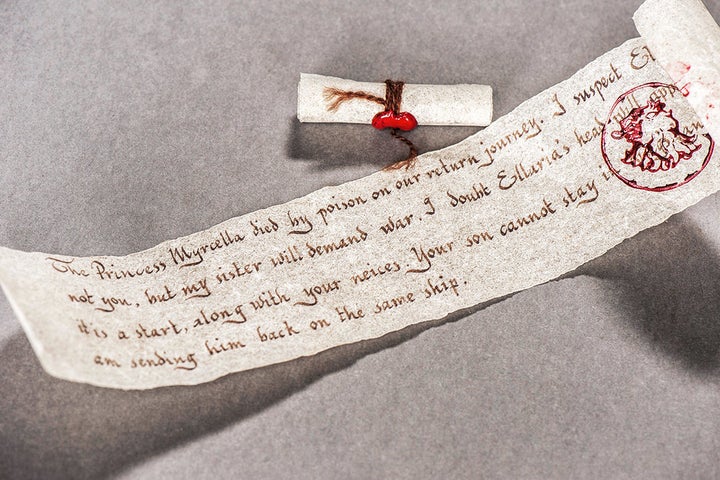 The Princess Myrcella died by poison on our return journey. I suspect El
not you, but my sister will demand war. I doubt Ellaria's head will app
it's a start, along with your neices. Your son cannot stay
am sending him back on the same ship.